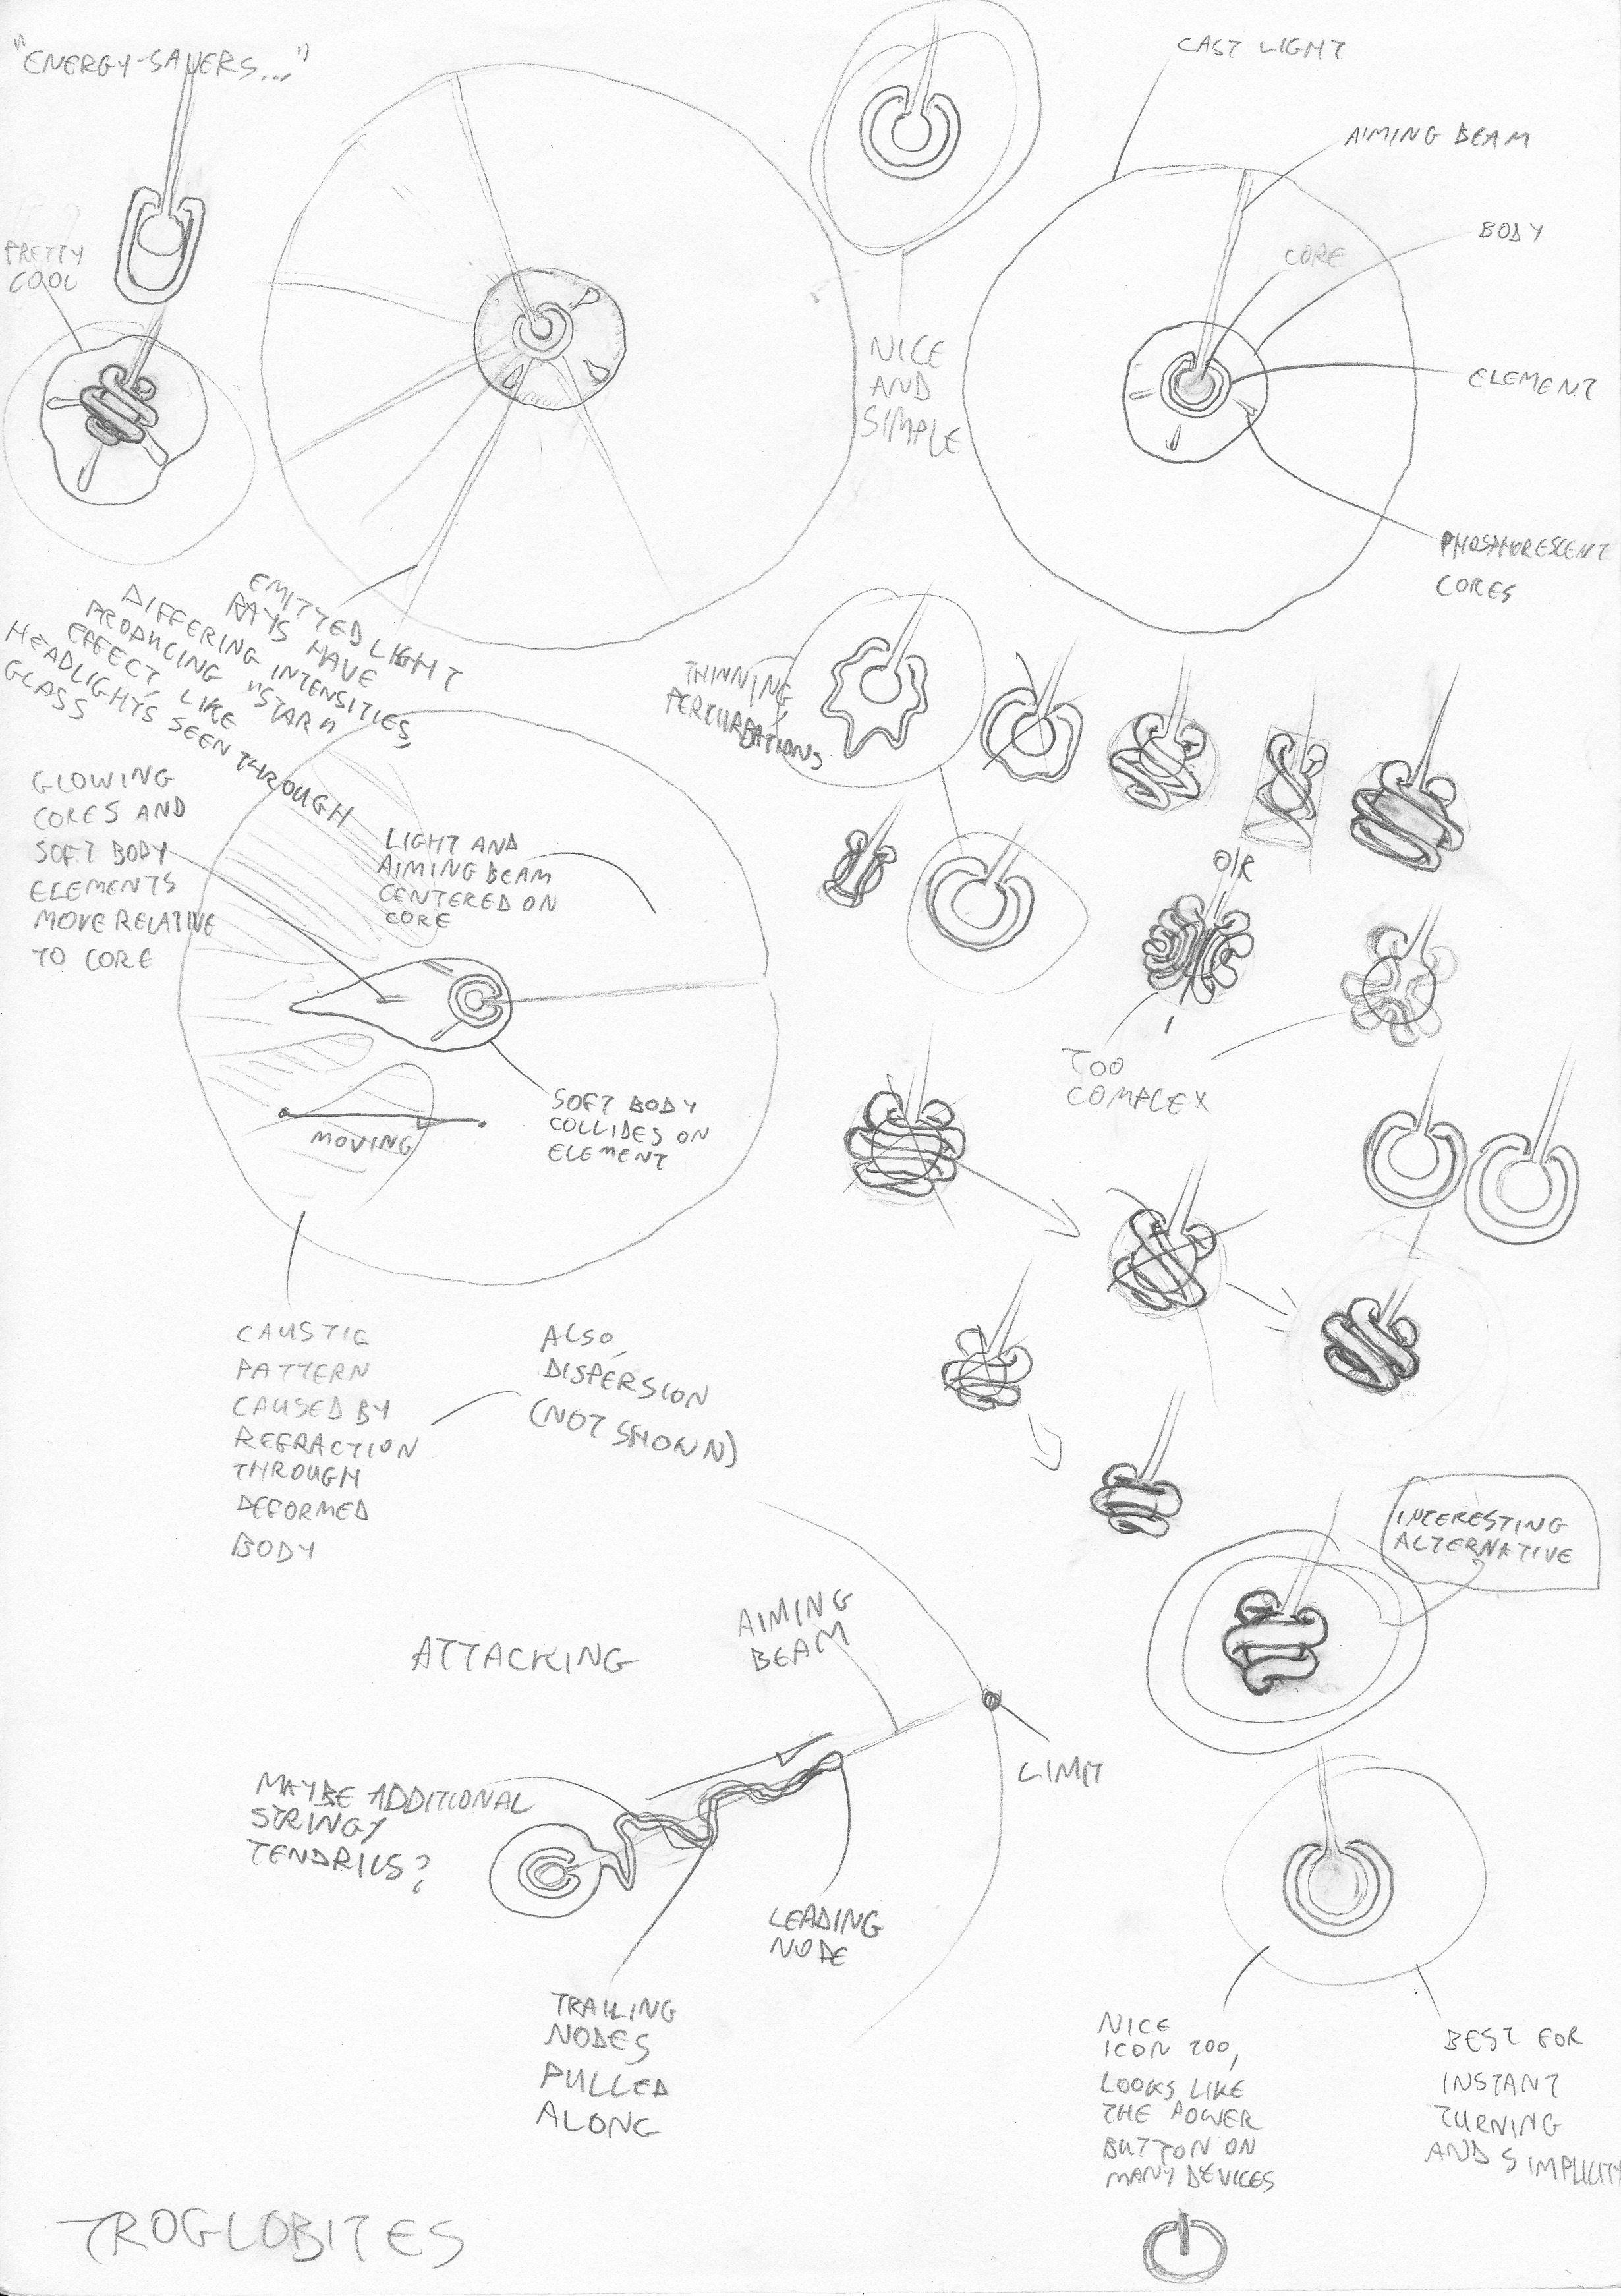 "ENERGY-SAVERS..."
CAST LIGHT
AIMING BEAM
BODY
CORE
ELEMENT
PHOSPHORESCENT
CORES
PRETTY
COOL
NICE
AND
SIMPLE
EMITTED LIGHT
RAYS HAVE
DIFFERING INTENSITIES,
PRODUCING "STAR"
EFFECT, LIKE
HEADLIGHTS SEEN THROUGH
GLASS
THINNING,
PERTURBATIONS
GLOWING
CORES AND
SOFT BODY
ELEMENTS
MOVE RELATIVE
TO CORE
LIGHT AND
AIMING BEAM
CENTERED ON
CORE
O/R
TOO
COMPLEX
MOVING
SOFT BODY
COLLIDES ON
ELEMENT
CAUSTIC
PATTERN
CAUSED BY
REFRACTION
THROUGH
DEFORMED
BODY
ALSO,
DISPERSION
(NOT SHOWN)
INTERESTING
ALTERNATIVE
ATTACKING
AIMING
BEAM
LIMIT
MAYBE ADDITIONAL
STRINGY
TENDRILS?
LEADING
NODE
TRAILING
NODES
PULLED
ALONG
NICE
ICON TOO,
LOOKS LIKE
THE POWER
BUTTON ON
MANY DEVICES
BEST FOR
INSTANT
TURNING
AND SIMPLICITY
TROGLOBITES